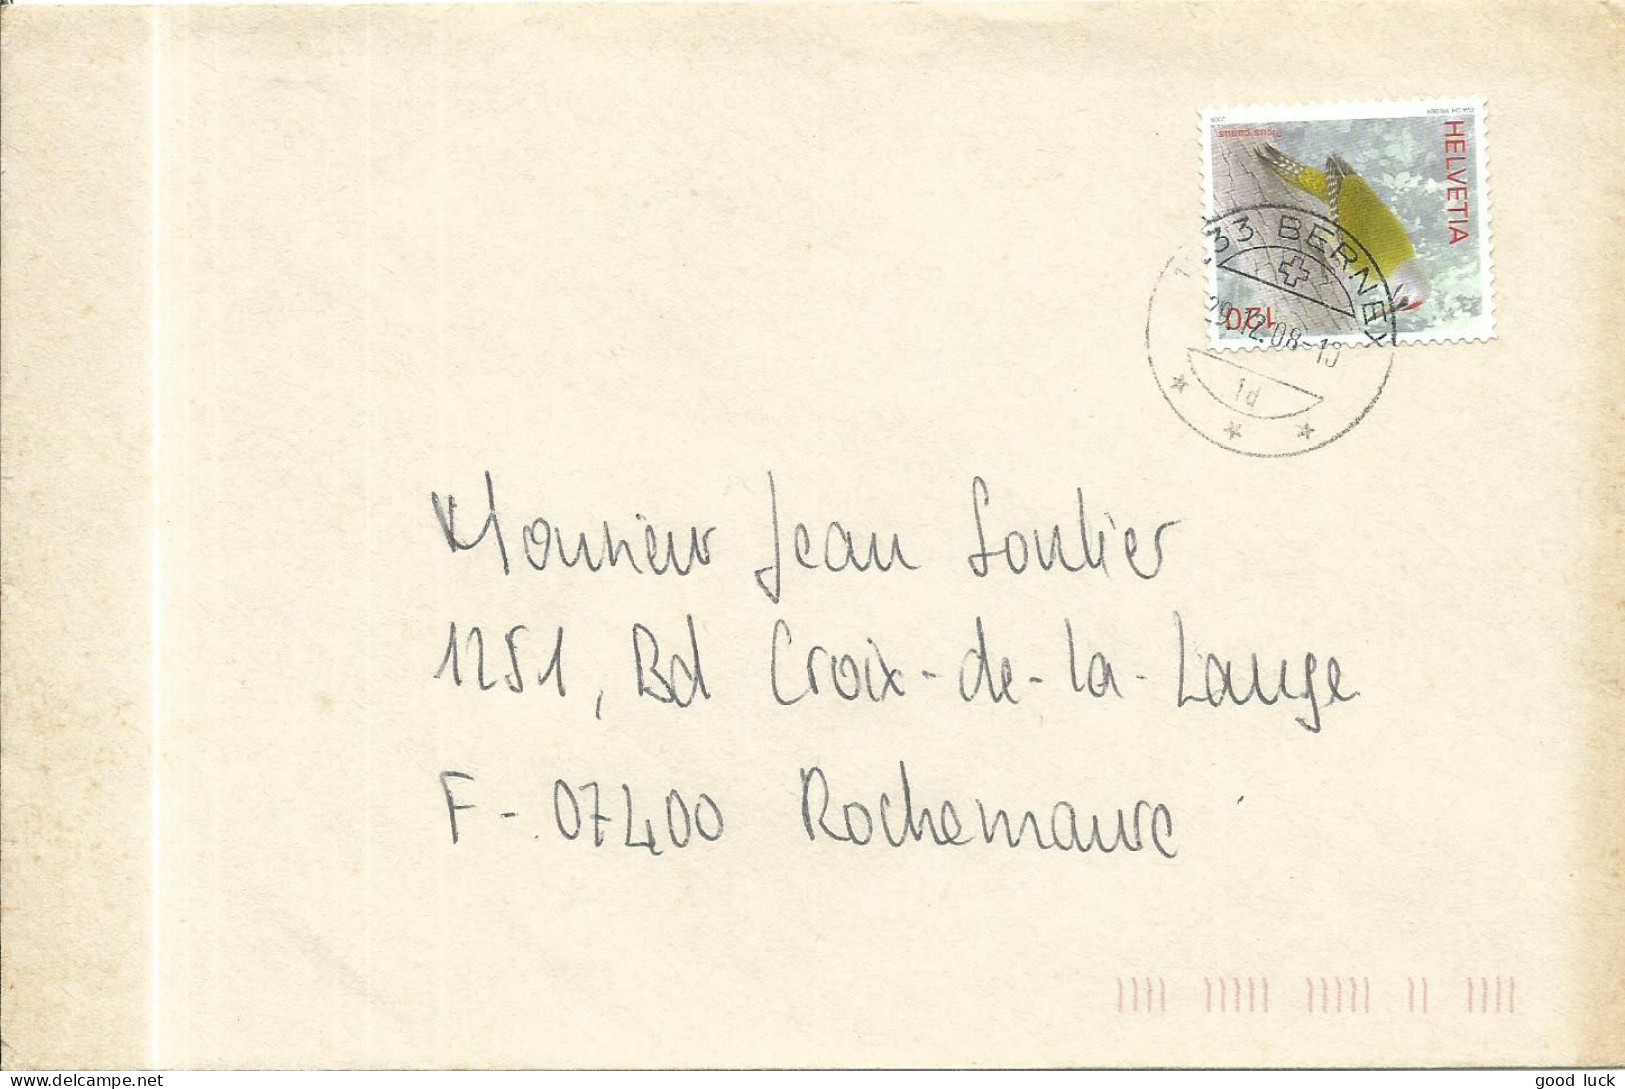 HELVETIA
Picus canus
120
1233 BERNEX
29.12.08-19
1d
Monsieur Jean Soulier
1251, Bd Croix-de-la-Lauze
F-07400 Rochemaure
good luck